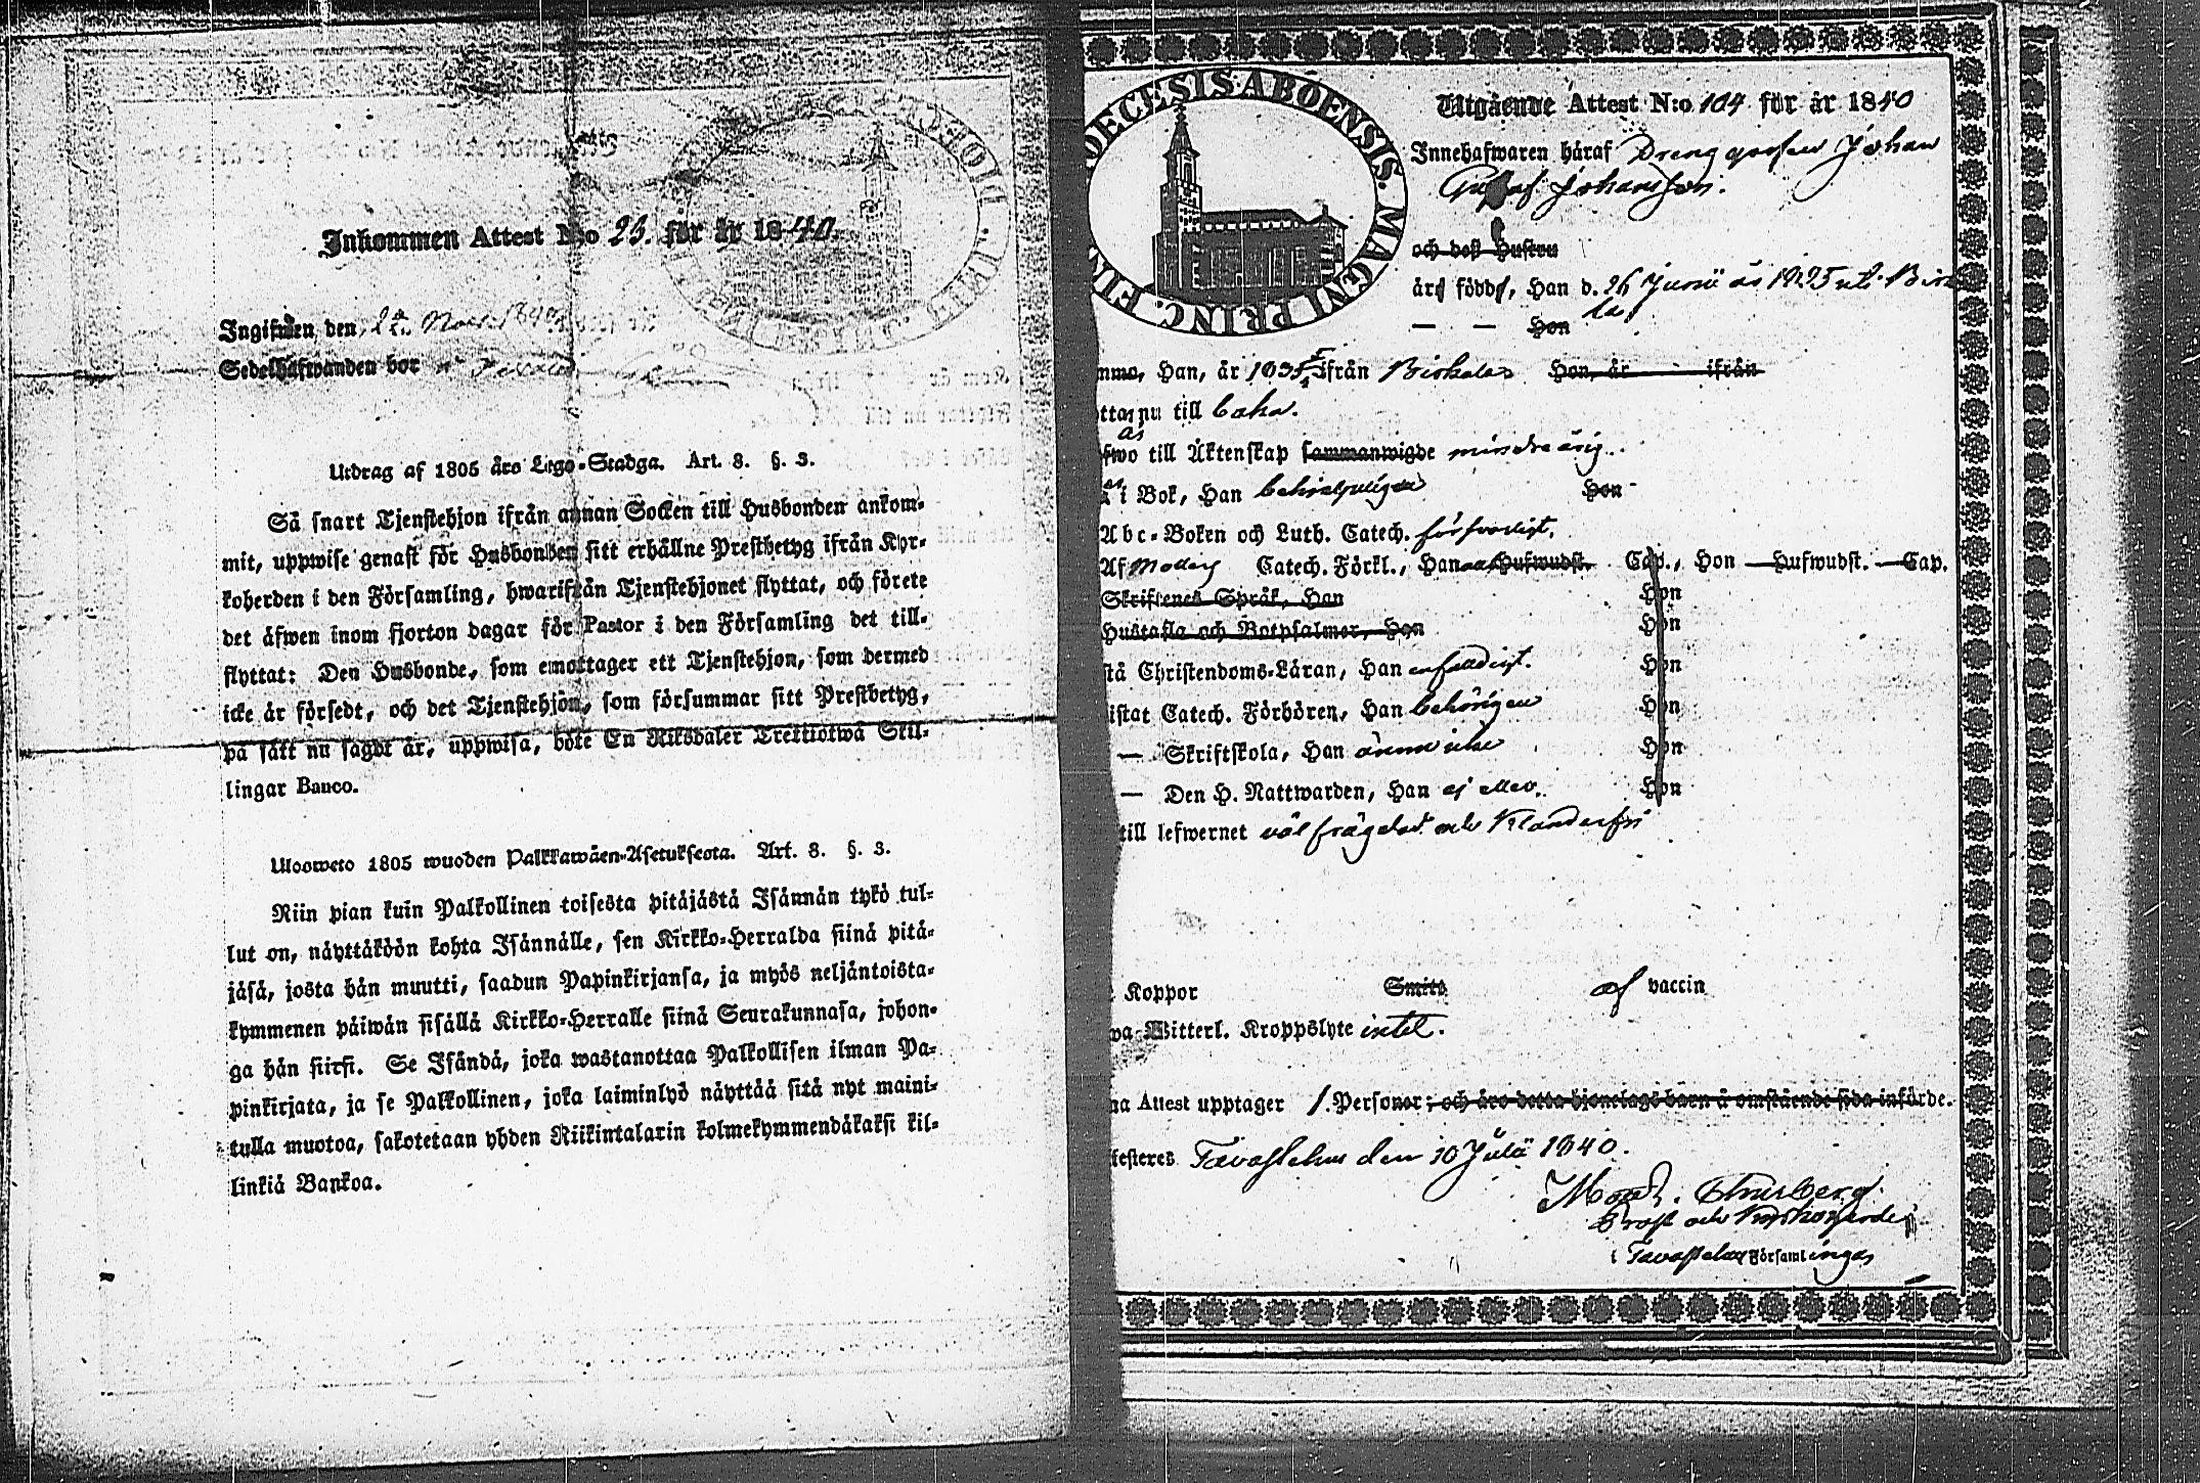 Inkommen Attest N:o 23. för år 1840.
Ingifwen den
Sedelhafwanden bor
Utdrag af 1805 års Lego-Stadga. Art. 8. §. 3.
Så snart Tjenstehjon ifrån annan Socken till Husbonden ankom-
mit, uppwise genast för Husbonden sitt erhållne Prestbetyg ifrån Kyr-
koherden i den Församling, hwarifrån Tjenstehjonet flyttat, och förete
det äfwen inom fjorton dagar för Pastor i den Församling det till-
flyttat: Den Husbonde, som emottager ett Tjenstehjon, som dermed
icke är försedt, och det Tjenstehjon, som försummar sitt Prestbetyg,
på sätt nu sagdt är, uppwisa, böte En Riksdaler Trettiotwå Skil-
lingar Banco.
Ulosweto 1805 wuoden Palkkawäen-Asetuksesta. Art. 8. §. 3.
Niin pian kuin Palkollinen toisesta pitäjästä Isännän tykö tul-
lut on, näyttäköön kohta Isännälle, sen Kirkko-Herralda siinä pitä-
jäsä, josta hän muutti, saadun Papinkirjansa, ja myös neljäntoista-
kymmenen päiwän sisällä Kirkko-Herralle siinä Seurakunnasa, johon-
ga hän siirsi. Se Isändä, joka wastanottaa Palkollisen ilman Pa-
pinkirjata, ja se Palkollinen, joka laiminlyö näyttää sitä nyt maini-
tulla muotoa, sakotetaan yhden Riikintalarin kolmekymmendäkaksi kil-
linkiä Bankoa.
OECESIS ABOENSIS. MAGNI PRINC. FIN
Utgående Attest N:o 104 för år 1840
Innehafwaren häraf Drenggossen Johan
Gustaf Johansson.
och dess Hustru
är född, Han d. 26 Junii år 1825 uti Birka
la,
— — Hon
mmo, Han, år 1835 ifrån Birkala Hon, år ifrån
ottar nu till
fwo till Äktenskap sammanwigde minderårig.
i Bok, Han behjelpligen Hon
Abc-Boken och Luth. Catech. försvarligt.
Af Moders Catech. Förkl., Han Hufwudst. Cap., Hon — Hufwudst. — Cap.
Skriftenes Språk, Han Hon
Hustafla och Botpsalmer, Han Hon
stå Christendoms-Läran, Han enfaldigt. Hon
istat Catech. Förhören, Han behörigen Hon
— Skriftskola, Han ännu icke Hon
— Den H. Nattwarden, Han ej eller. Hon
till lefwernet väl frägdad och klanderfri
Koppor Smito af vaccin
wa Witterl. Kroppslyte intet.
na Attest upptager 1. Personer; och äro detta hjonelags barn å omstående sida införde.
testeres Tavastehus den 10 Julii 1840.
Prost och Kyrkoherde
i Tavastehus Församlingar